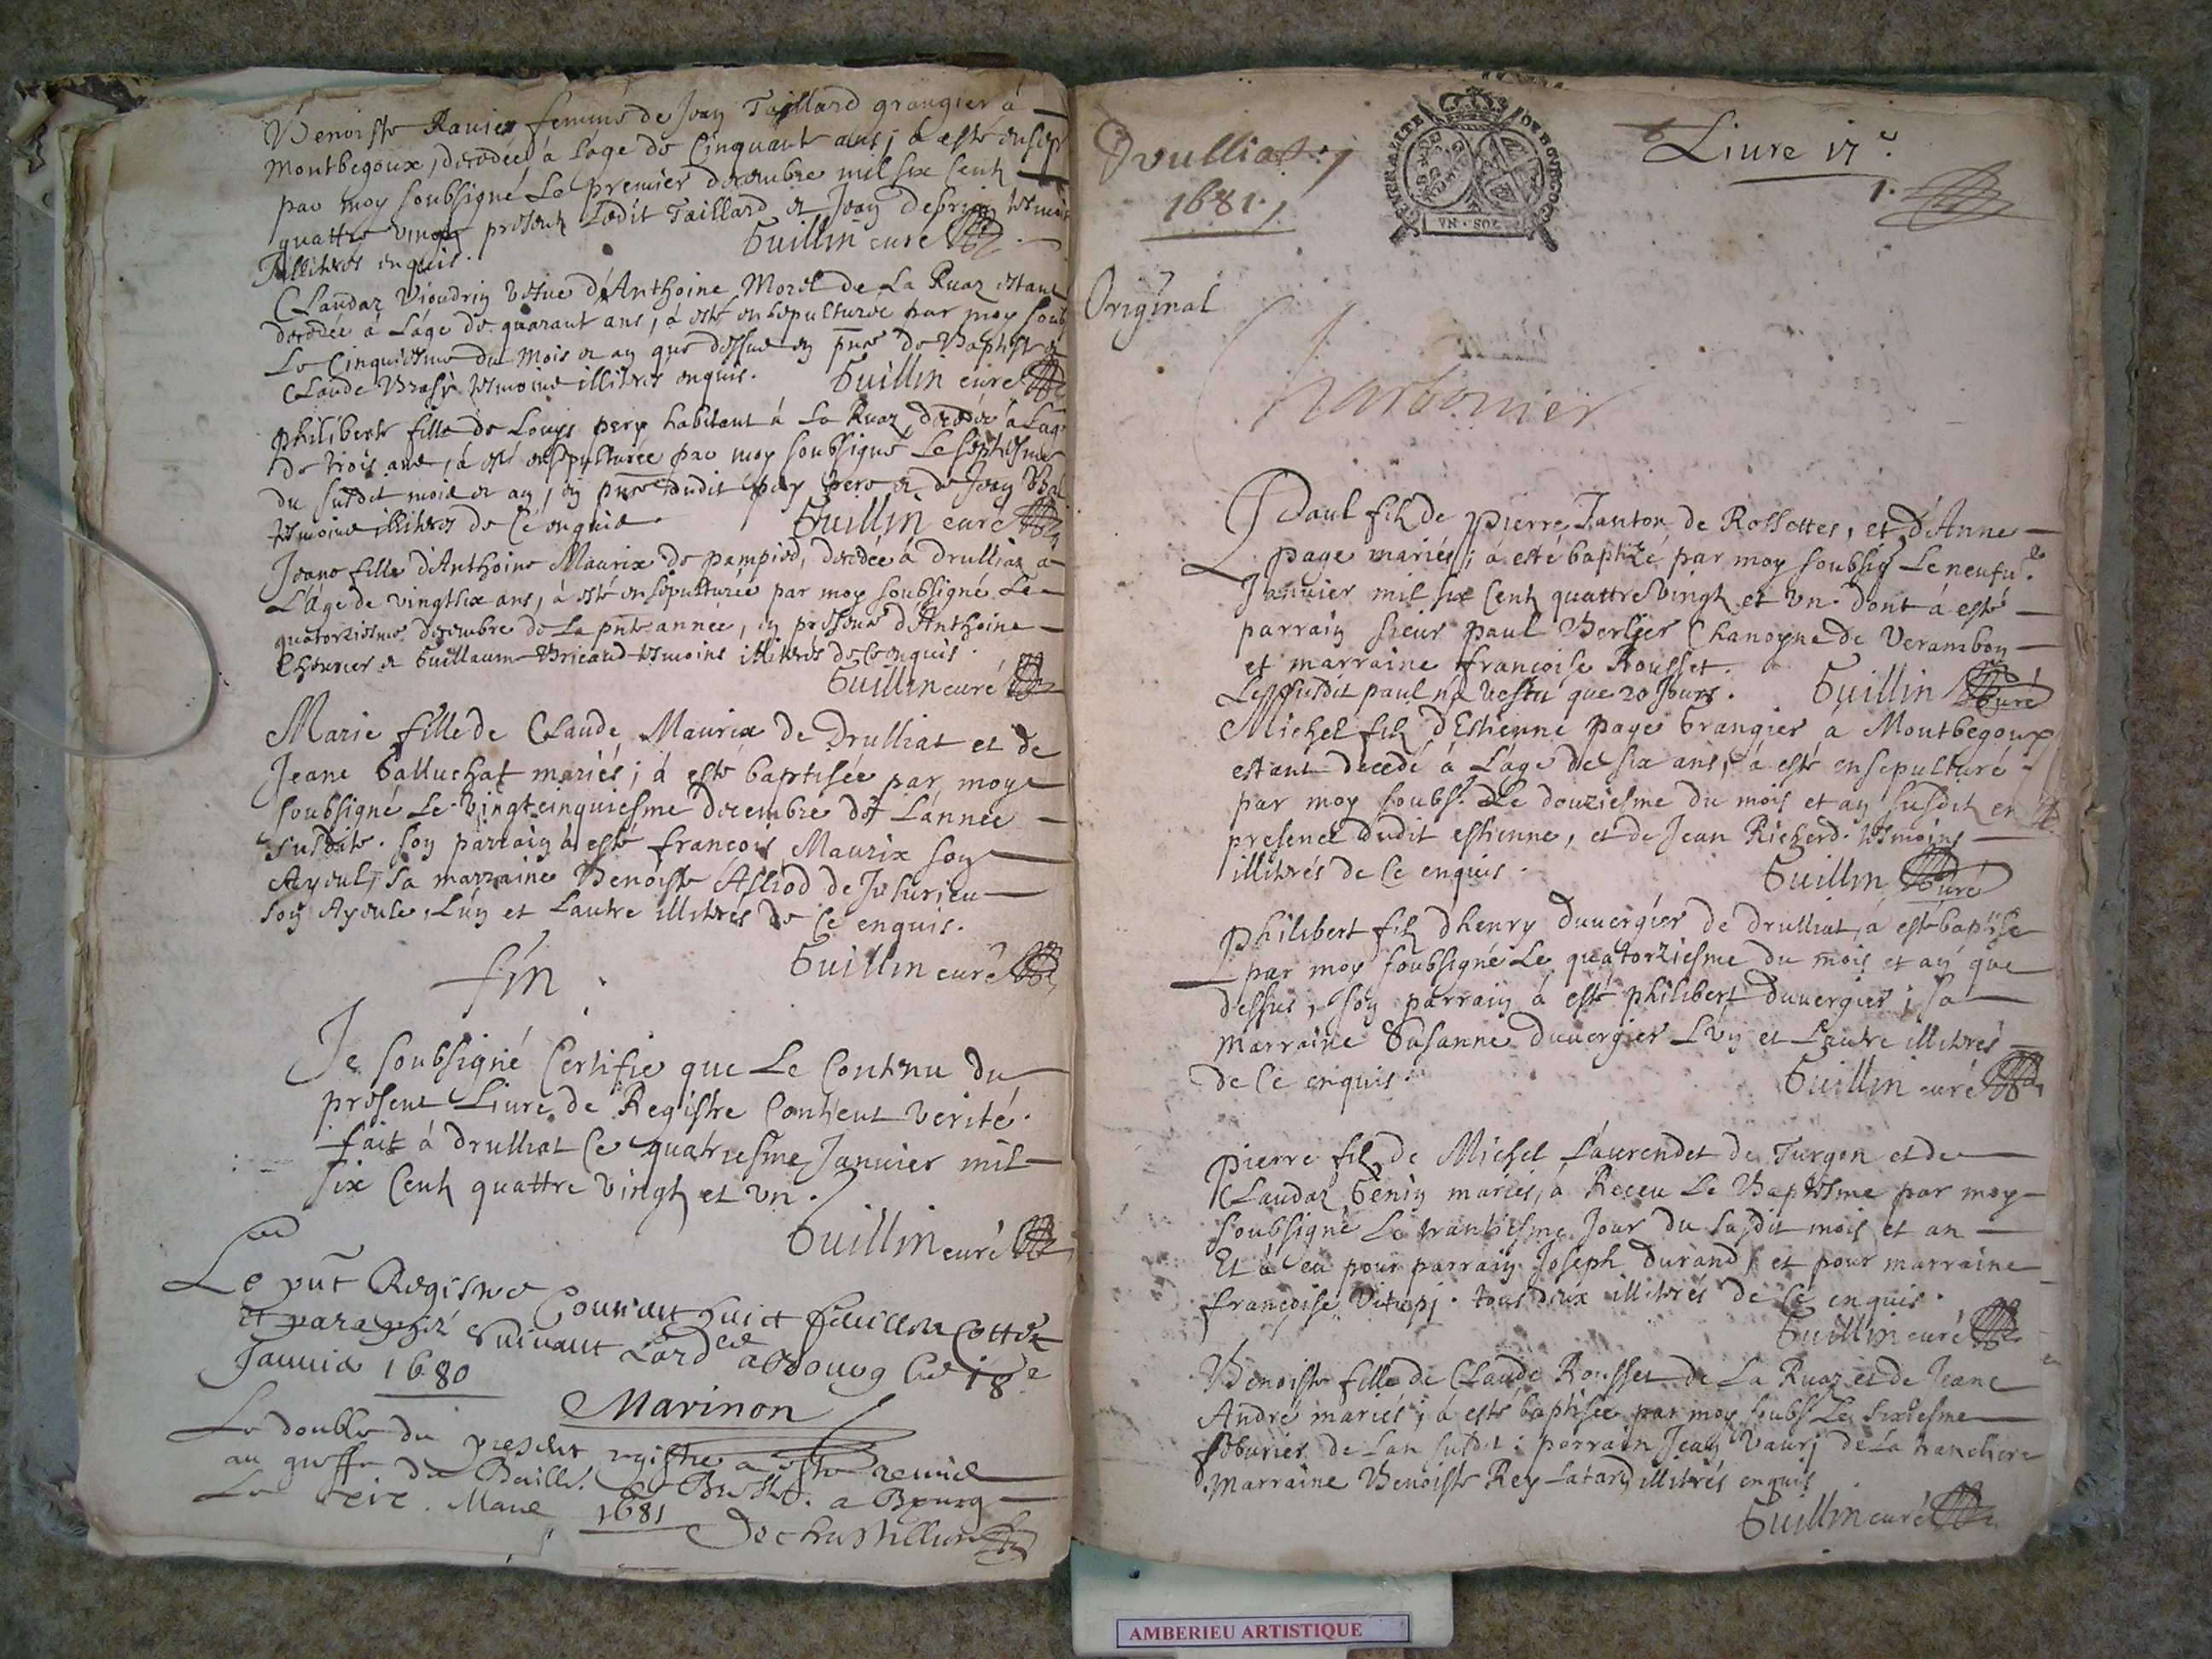 Benoiste Ravier femme de Jean Taillard grangier à
Montbegoux, decedée à l'age de Cinquant ans, à esté ensep
par moy soubsigné Le premier decembre mil six Cent
quattre vingt present Ledit Taillard et Jean tesmoins
illitres enquis. Guillin curé
Claudaz Vioudrin vefue d'Anthoine Morel de La Ruaz estant
decedée à L'age de quarant ans, à esté ensepulturée par moy soub
Le Cinquiesme du Mois et an que dessus en pnce de Baptiste et
Claude tesmoins illitres enquis. Guillin curé
philiberte fille de Louys pery habitant à La Ruaz, decedée à L'age
de trois ans, à esté ensepulturée par moy soubsigné Le septiesme
du susdit mois et an, en pnce dudit pery pere et de Jean
tesmoins illitres de Cé enquis. Guillin curé
Jeane fille d'Anthoine Maurix de pampied, decedée à drulliat à
L'age de vingtsix ans, à esté ensepulturée par moy soubsigné Le
quatorziesme decembre de La pnte année, en presence d'Anthoine
et Guillaume Bricaud tesmoins illitrés de Ce enquis.
Guillin curé
Marie fille de Claude Maurix de Drulliat et de
Jeane Galluchat mariés; à esté baptisée par moy
soubsigné Le vingtcinquiesme decembre de L'année
susdite. son parrain à esté françois Maurix son
Ayeul, sa marraine Benoiste Alliod de Jusurieu
son Ayeule, Lun et Lautre illitrés de Ce enquis.
fin. Guillin curé
Je soubsigné Certifie que Le Contenu du
present Liure de Registre Contient verité.
fait à drulliat Ce quatriesme Januier mil
six Cent quattre vingt et vn.
Guillin curé
Le pnt Registre Contient huict feuillets Cottés
et paraphé suivant Lordce a Bourg Ce 18e
Januie 1680
Marinon
Le double du present registre a esté remis
au greffe du Baill. de a Bourg
Le Mars 1681
Drulliat
1681.
GENERALITE DE BOVRGOG
VN·SOL
Liure 17e.
1.
Original
Charbonier
Paul fils de pierre Tanton de Rossettes, et d'Anne
page mariés; à esté baptizé par moy soubsig Le neufu.e
Januier mil six Cent quattre Vingt et vn. dont à esté
parrain sieur paul Berlier Chanoyne de Verambon
et marraine françoise Rousset.
Le susdit paul n'a vestu que 20 Jours. Guillin Curé
Michel fils d'Estienne page Grangier à Montbegoux
estant decedé à L'age de six ans, à esté ensepulturé
par moy soubs. Le douziesme du mois et an susdit en
presence dudit estienne, et de Jean Richerd. tesmoins
illitrés de Ce enquis. Guillin Curé
philibert fils dhenry duuergier de drulliat, à esté baptisé
par moy soubsigné Le quatorziesme du mois et an que
dessus, son parrain à esté philibert duuergier; sa
marraine Susanne duuergier Lvn et Lautre illitrés
de Ce enquis. Guillin curé
pierre fils de Michel Laurendet de Turgon et de
Claudaz Genin mariés, à Receu Le Baptesme par moy
soubsigné Le trantiesme Jour du susdit mois et an
Et à eu pour parrain Joseph durand, et pour marraine
françoise. tous deux illitrés de Cé enquis.
Guillin curé
Benoiste fille de Claude Rousset de La Ruaz et de Jeane
André mariés; à esté baptisée par moy soubs Le sixiesme
feburier de Lan susdit; parrain Jean Vaurj de La tranchere
Marraine Benoiste Rey illitrés enquis
Guillin curé
AMBERIEU ARTISTIQUE